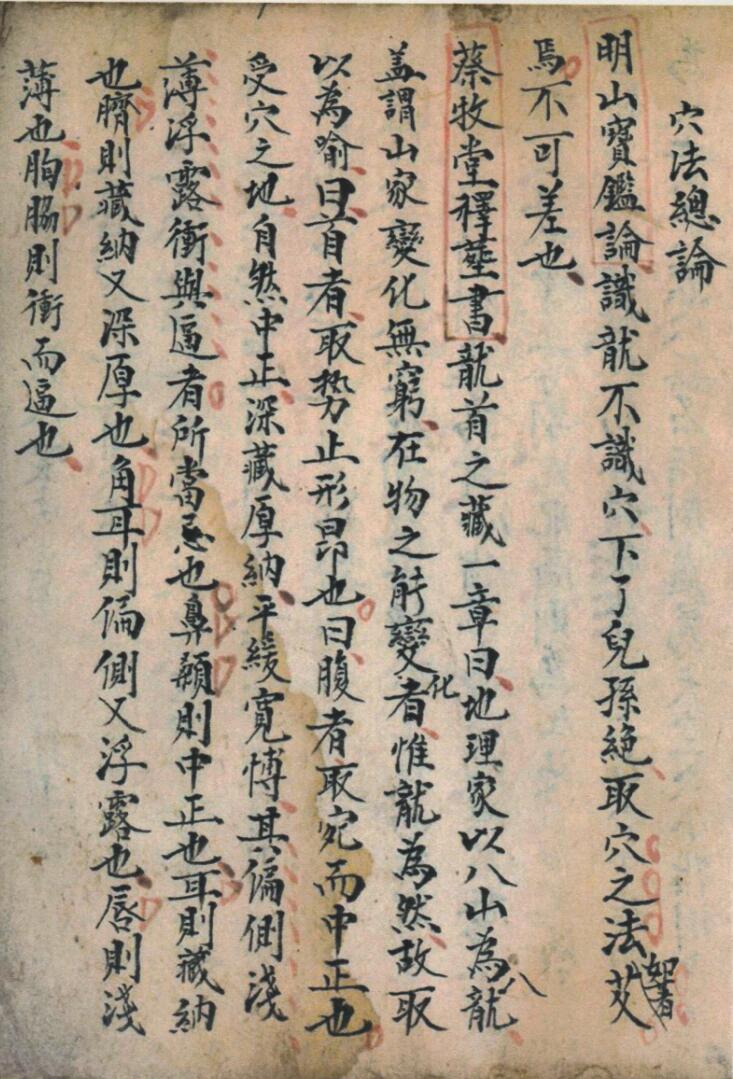 穴法總論
明山寶鑑論識龍不識穴下了兒孫絶取穴之法如着艾
焉不可差也
蔡牧堂釋塟書龍首之藏一章曰地理家以八山為八龍
盖謂山家變化無窮在物之能變化者惟龍為然故取
以為喻曰首者取势止形昂也曰腹者取宛而中正也
受穴之地自然中正深藏厚納平緩寬愽其偏側淺
薄浮露衝與逼者所當忌也鼻顙則中正也耳則藏納
也臍則藏納又深厚也角耳則偏側又浮露也唇則淺
薄也胸脇則衝而逼也